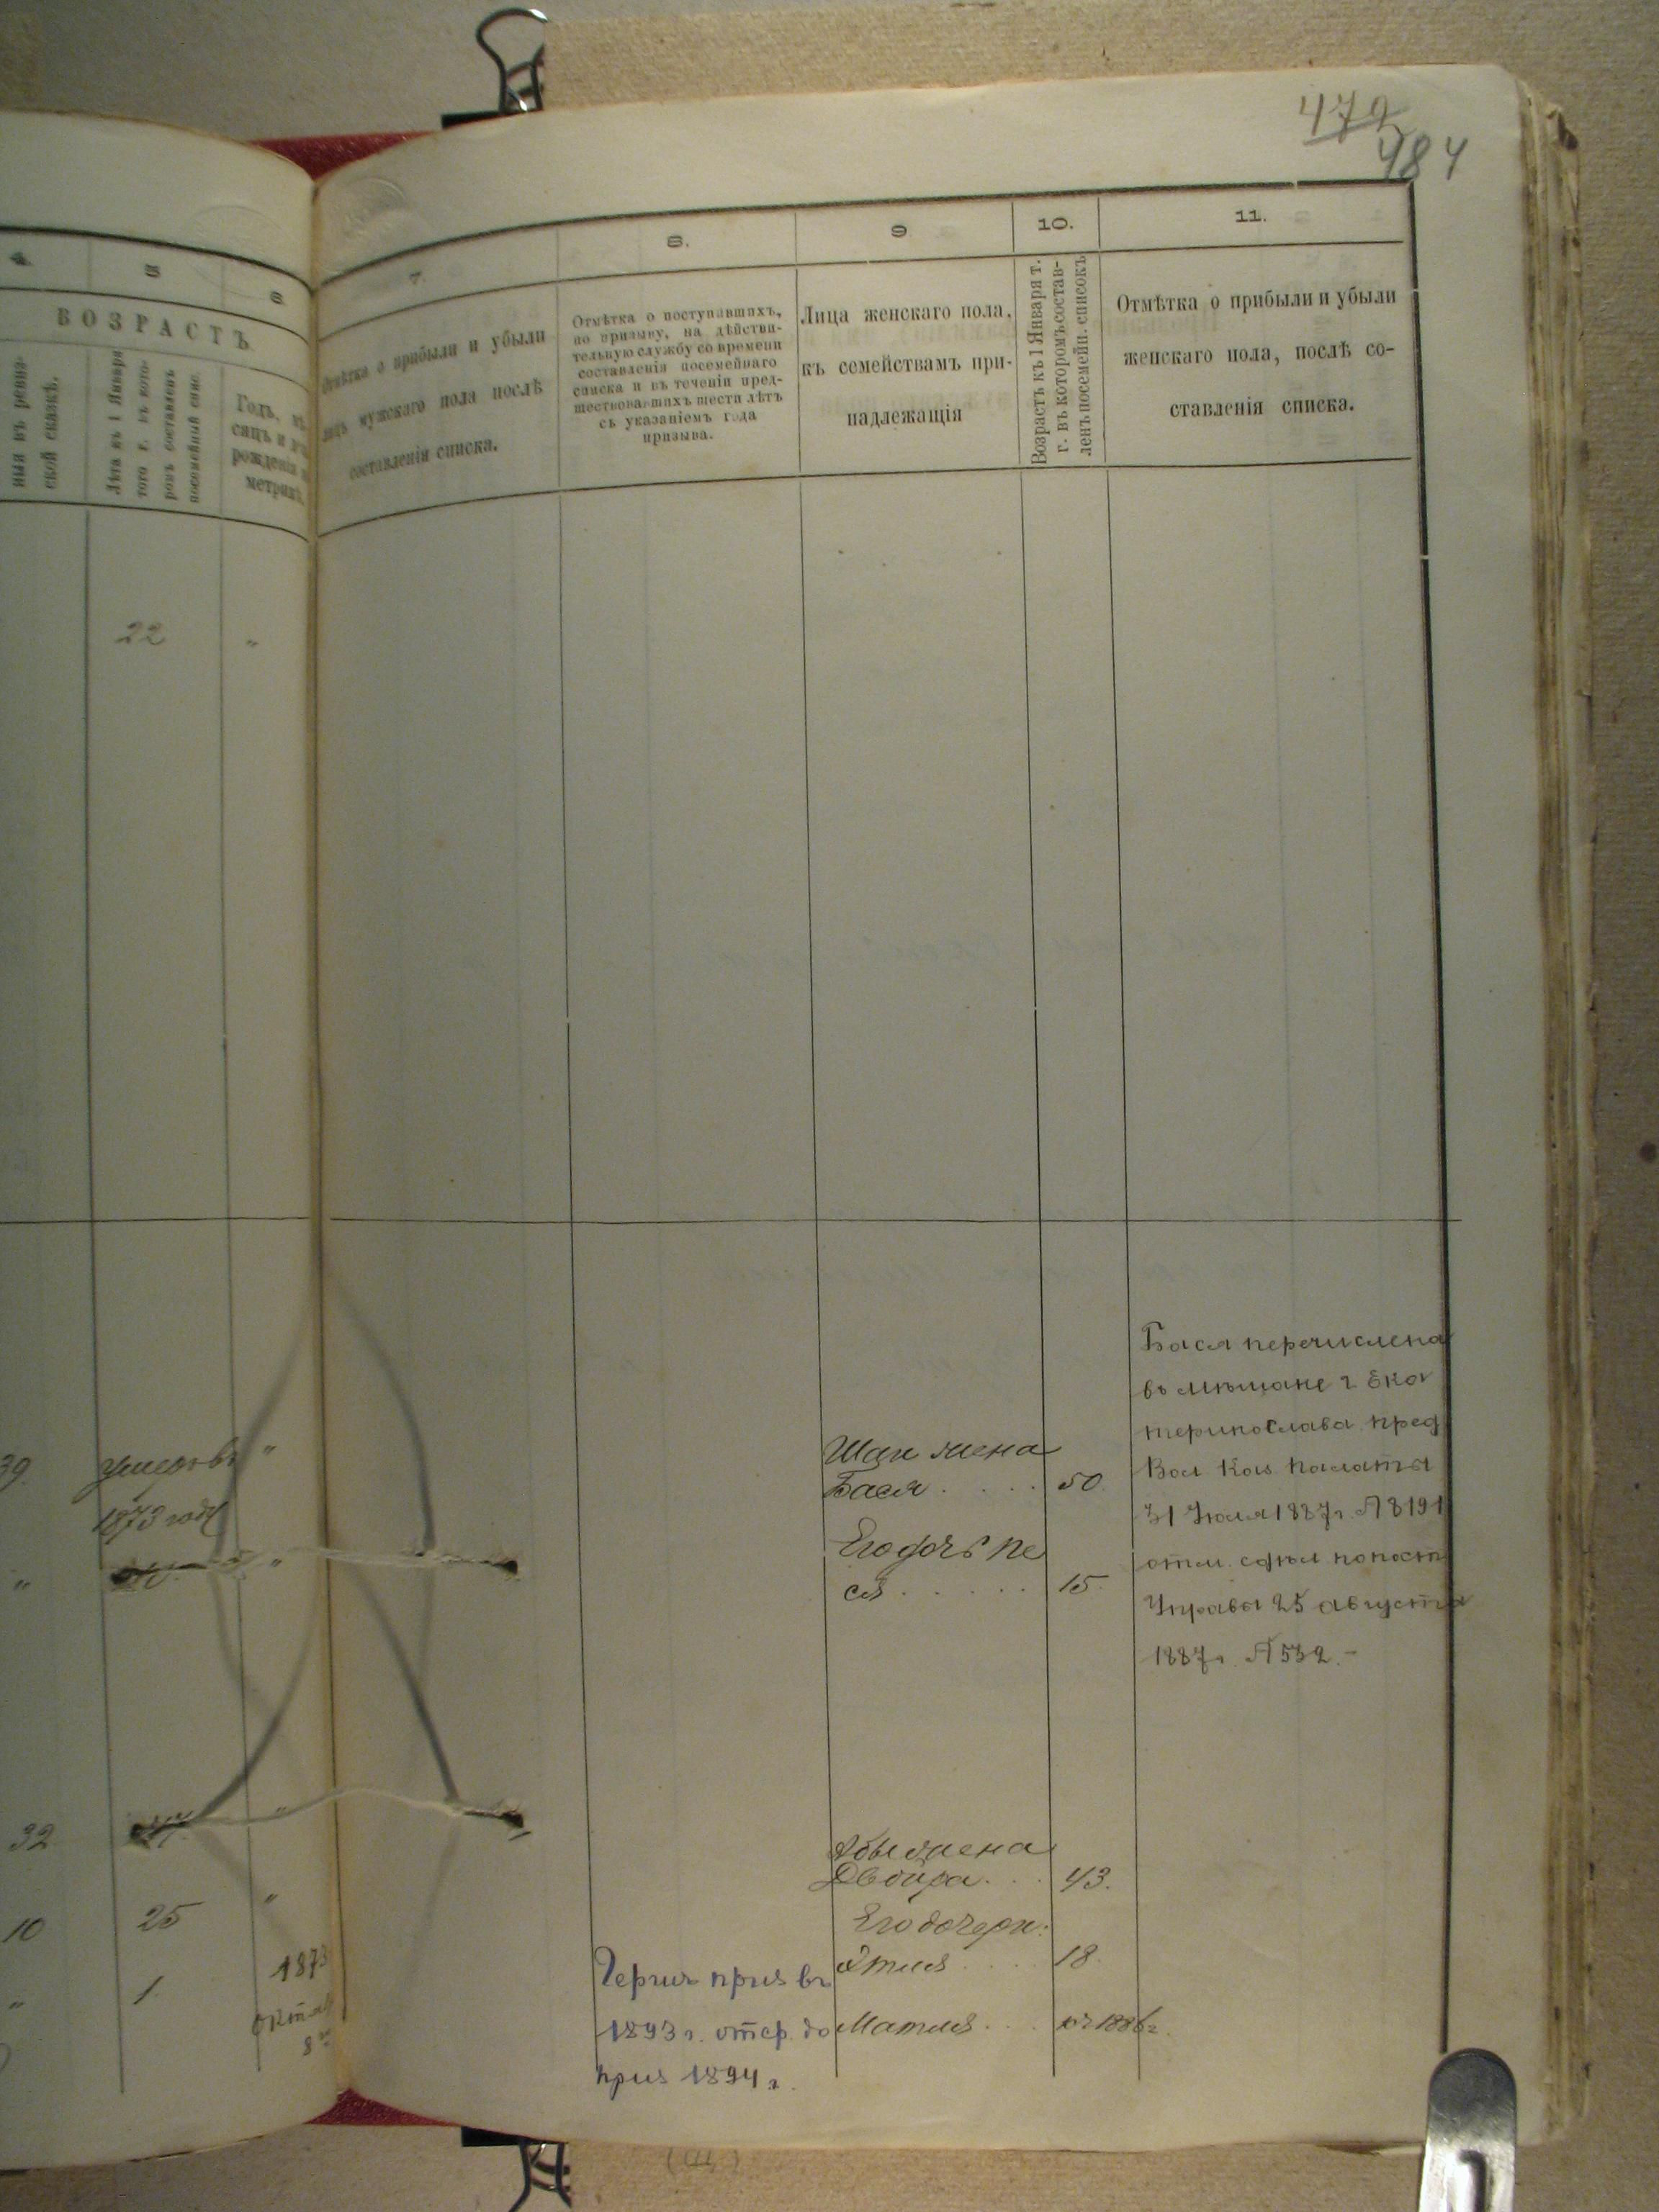 479
484
4.
5
6.
ВОЗРАСТЪ
ныя въ ревиз-
ской сказкѣ.
Лѣта къ 1 Января
того г. въ кото-
ромъ составленъ
посемейный спис.
Годъ, мѣ-
сяцъ и
рожденія
метрик.
22 "
39. умеръ въ "
1873 году
" "
32 "
10 25 "
" 1 1873
Октяб
8
7.
Отмѣтка о прибыли и убыли
лицъ мужскаго пола послѣ
составленія списка.
8.
Отмѣтка о поступавшихъ,
по призыву, на дѣйстви-
тельную службу со времени
составленія посемейнаго
списка и въ теченіи пред-
шествовавшихъ шести лѣтъ
съ указаніемъ года
призыва.
9
Лица женскаго пола,
къ семействамъ при-
надлежащія
10.
Возрастъ къ 1 Января т.
г. въ которомъ состав-
ленъ посемейн. списокъ
11.
Отмѣтка о прибыли и убыли
женскаго пола, послѣ со-
ставленія списка.
жена
Бася . . . . . 50.
Его дочь Пе
ся . . . . . . 15.
Бася перечислена
въ мѣщане г. Ека
теринослава пред
Вол. Каз. Палаты
31 Іюля 1887 г. № 8191
отм. сдѣл по пост
Управы 25 августа
1887 г. № 532.-
жена
Двойра . . . 43.
Его дочери:
18.
Матля . . . 1886 г.
приз въ
1893 г. отср. до
приз 1894 г.